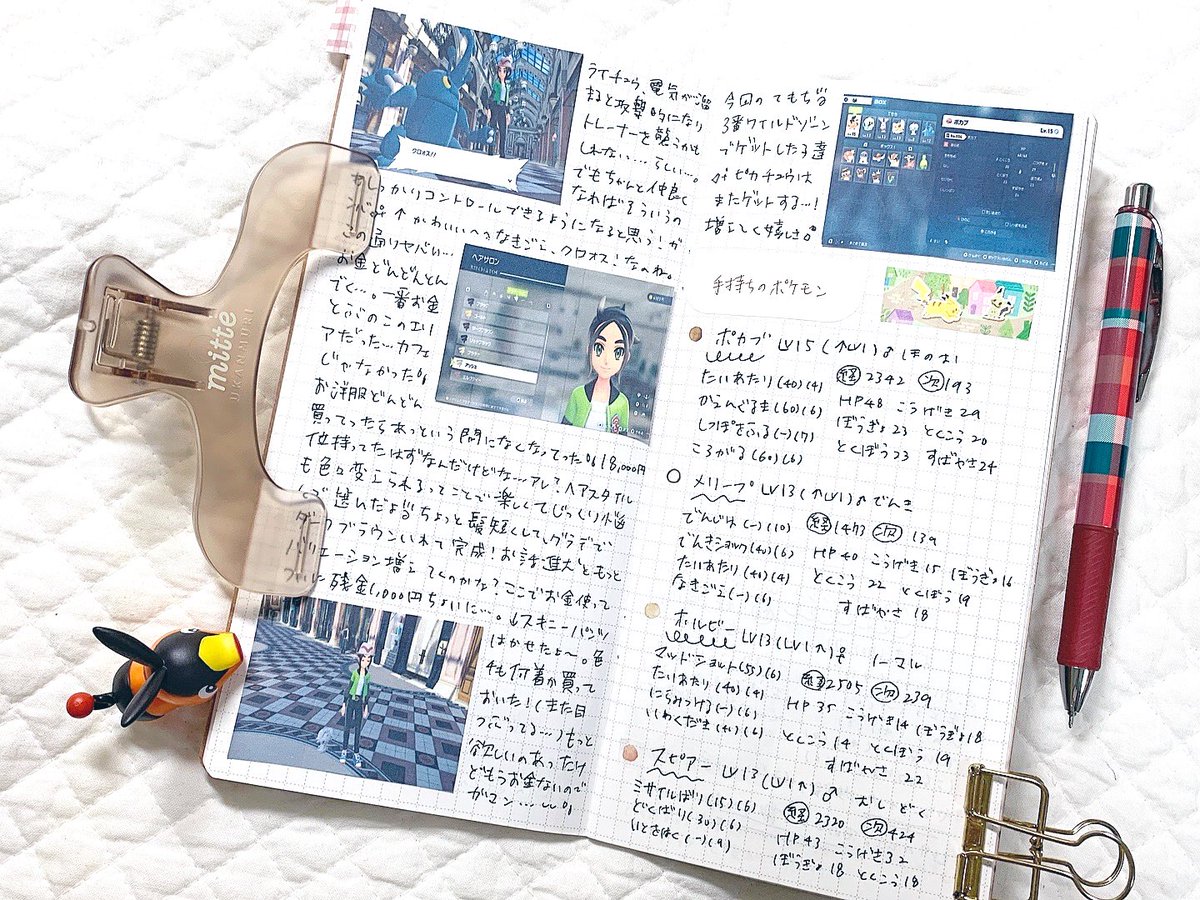 ライチュウ、電気が溜
まると攻撃的になり
トレーナーを襲うかも
しれない…らしい…。
でもちゃんと仲良く
なればそういうの
しっかりコントロールできるようになると思う!が
↑かわいいへんなきごえ、クロオス!なのね。
通りヤバい…
お金どんどんとん
でく…。一番お金
とぶのこのエリ
アだった…カフェ
じゃなかった
お洋服どんどん
買ってったらあっという間になくなってった 18,000円
位持ってたはずなんだけどな…アレ?ヘアスタイル
も色々変えられるってことで楽しくてじっくり悩
んで選んだよ ちょっと髪短くして、グラデで
ダークブラウンいれて完成!お話進むともっと
バリエーション増えてくのかな?ここでお金使って
ついに残金1,000円ちょいに…。↓スキニーパンツ
はかせたよ〜。色
々何着か買って
おいた!(また目
つぶってる…)もっと
欲しいのあったけ
どもうお金ないので
ガマン…
クロオス!!
ヘアサロン
mitte
UKANMURI
今回のてもちは
3番ワイルドゾーン
でゲットした子達
ピカチュウは
またゲットする…!
増えて嬉しさ。
BOX
ポカブ
Lv.15
手持ちのポケモン
ポカブ LV15(↑LV1)♂ほのお
たいあたり(40)(4) 経2342 次193
かえんぐるま(60)(6) HP48 こうげき29
しっぽをふる(ー)(7) ぼうぎょ23 とくこう20
ころがる(60)(6) とくぼう23 すばやさ24
メリープ LV13(↑LV1)♂でんき
でんじは(ー)(10) 経1477 次139
でんきショック(40)(6) HP40 こうげき15 ぼうぎょ16
たいあたり(40)(4) とくこう22 とくぼう19
なきごえ(ー)(6) すばやさ18
ホルビー LV13(LV1↑)♀ ノーマル
マッドショット(55)(6) 経2505 次239
たいあたり(40)(4) HP35 こうげき14 ぼうぎょ18
にらみつける(ー)(6) とくこう14 とくぼう19
いわくだき(40)(6) すばやさ22
スピアー LV13(LV1↑)♂ むし どく
ミサイルばり(15)(6) 経2320 次424
どくばり(30)(6) HP43 こうげき32
いとをはく(ー)(9) ぼうぎょ18 とくこう18